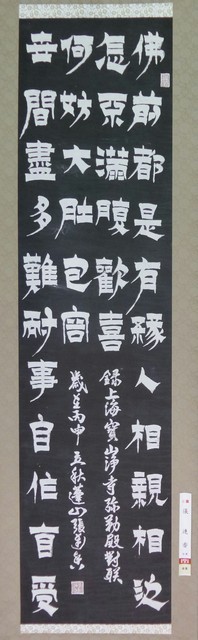 佛前都是有緣人相親相近
怎不滿腹歡喜
世間盡多難耐事自作自受
何妨大肚包容
錄上海寶山淨寺弥勒殿對联
歲在丙申立秋蓮山張